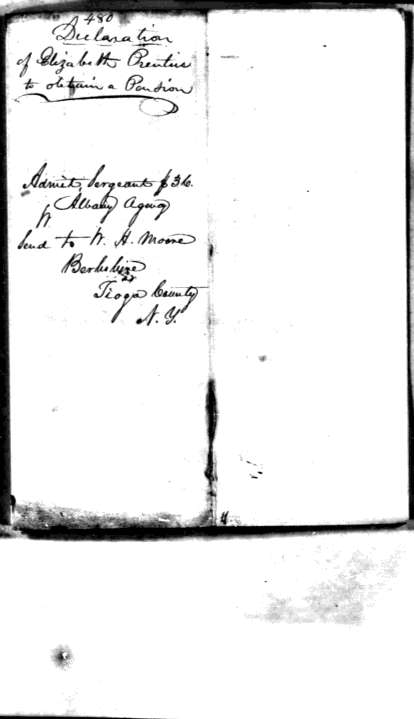 480
Declaration
of Elizabeth Prentice
to obtain a Pension
Admit, Sergeant $36.
Albany Agency
Send to W. H. Moore
Berkshire
Tioga County
N. Y.